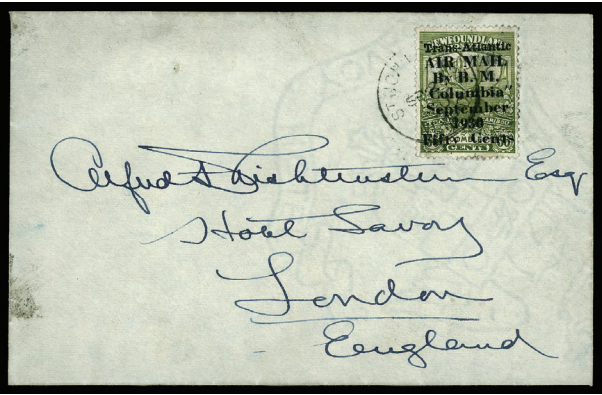 NEWFOUNDLAND
Trans-Atlantic
AIR MAIL
By B. M.
"Columbia"
September
1930
Fifty Cents
CENTS
ST. JOH
Alfred F. Lichtenstein Esq
Hotel Savoy
London
England